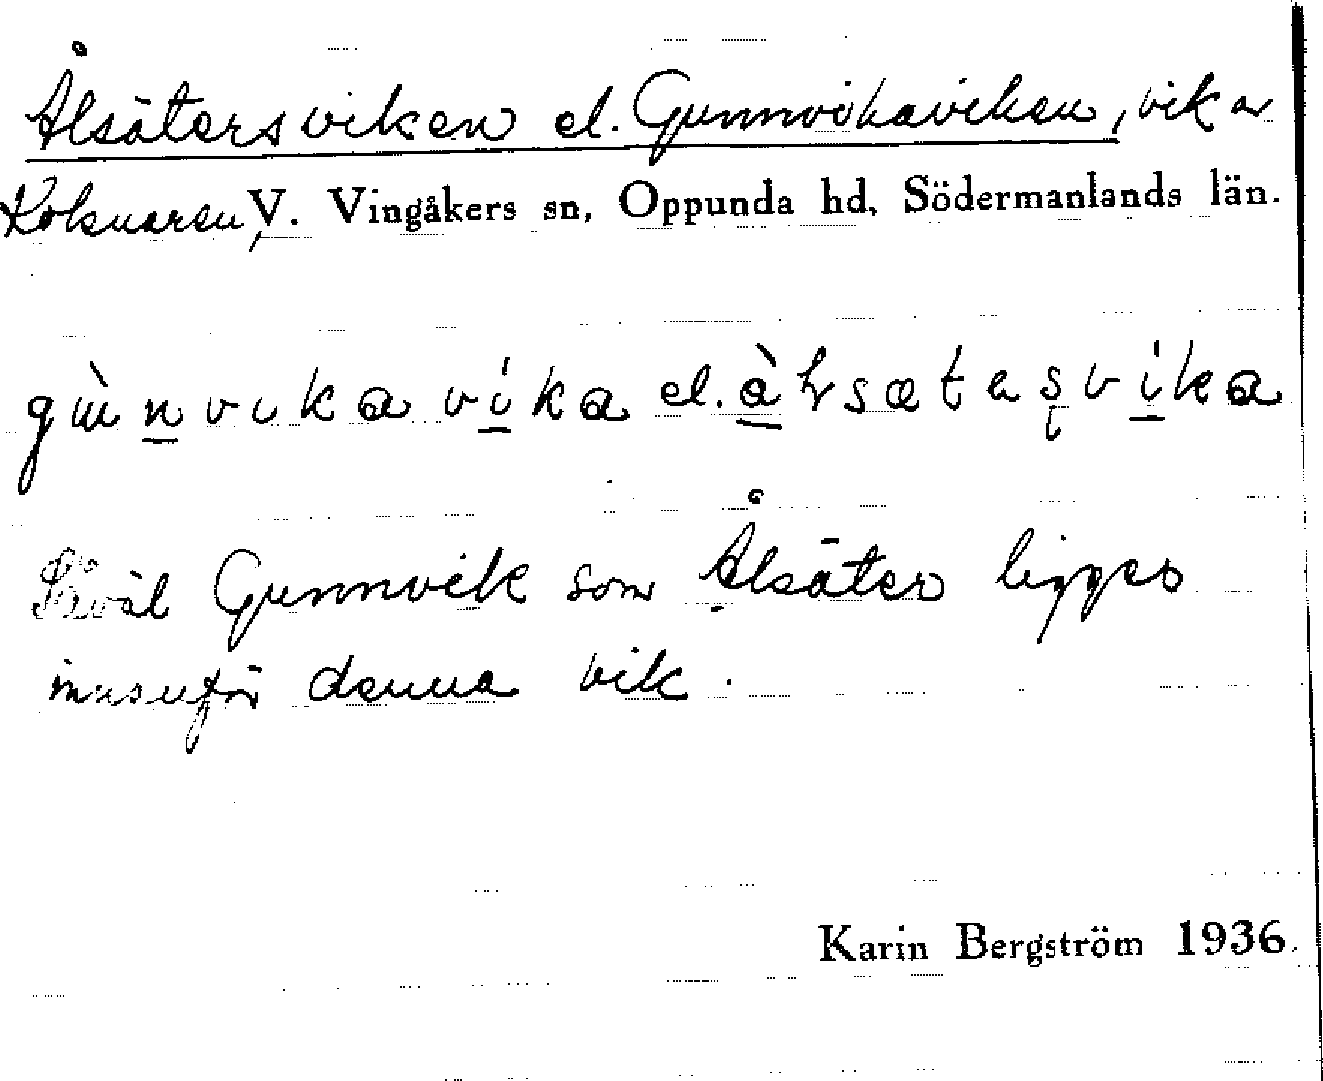 Ålsätersviken el. Gunnvikaviken, vik av
Kolsnaren, V. Vingåkers sn, Oppunda hd, Södermanlands län.
gùnvikavíka el. àlsætasvíka
Såväl Gunnvik som Ålsäter ligger
innanför denna vik.
Karin Bergström 1936.